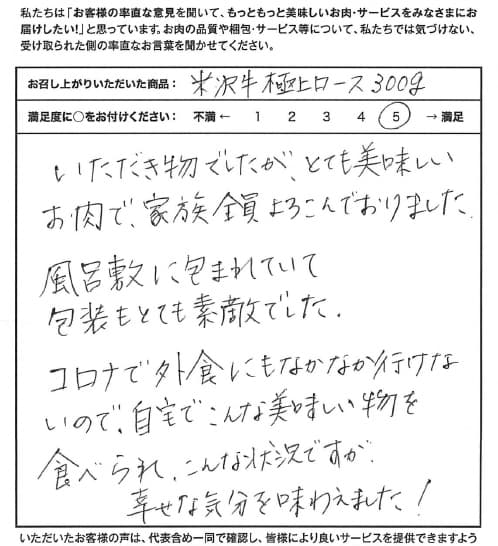 私たちは「お客様の率直な意見を聞いて、もっともっと美味しいお肉・サービスをみなさまにお
届けしたい!」と思っています。お肉の品質や梱包・サービス等について、私たちでは気づけない、
受け取られた側の率直なお言葉を聞かせてください。
お召し上がりいただいた商品： 米沢牛極上ロース300g
満足度に○をお付けください： 不満 ← 1 2 3 4 5 → 満足
いただき物でしたが、とても美味しい
お肉で、家族全員よろこんでおりました.
風呂敷に包まれていて
包装もとても素敵でした.
コロナで外食にもなかなか行けな
いので、自宅でこんな美味しい物を
食べられ、こんな状況ですが、
幸せな気分を味わえました!
いただいたお客様の声は、代表含め一同で確認し、皆様により良いサービスを提供できますよう